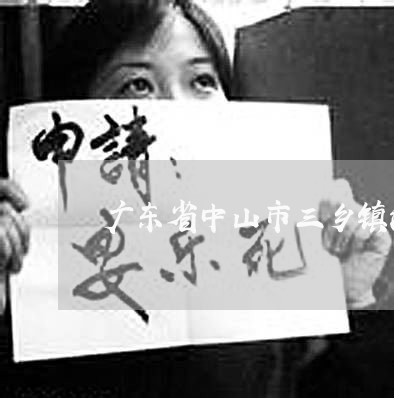 申請：
广东省中山市三乡镇
安乐死